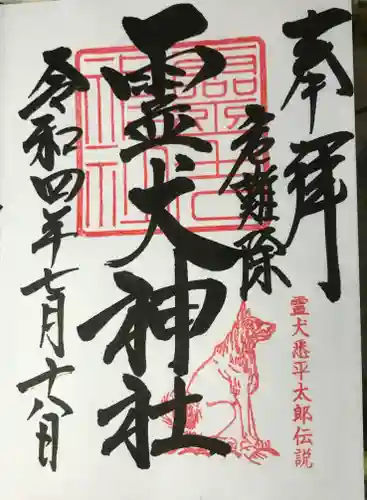 奉拝
危難除
霊犬神社
令和四年七月十八日
霊犬悉平太郎伝説